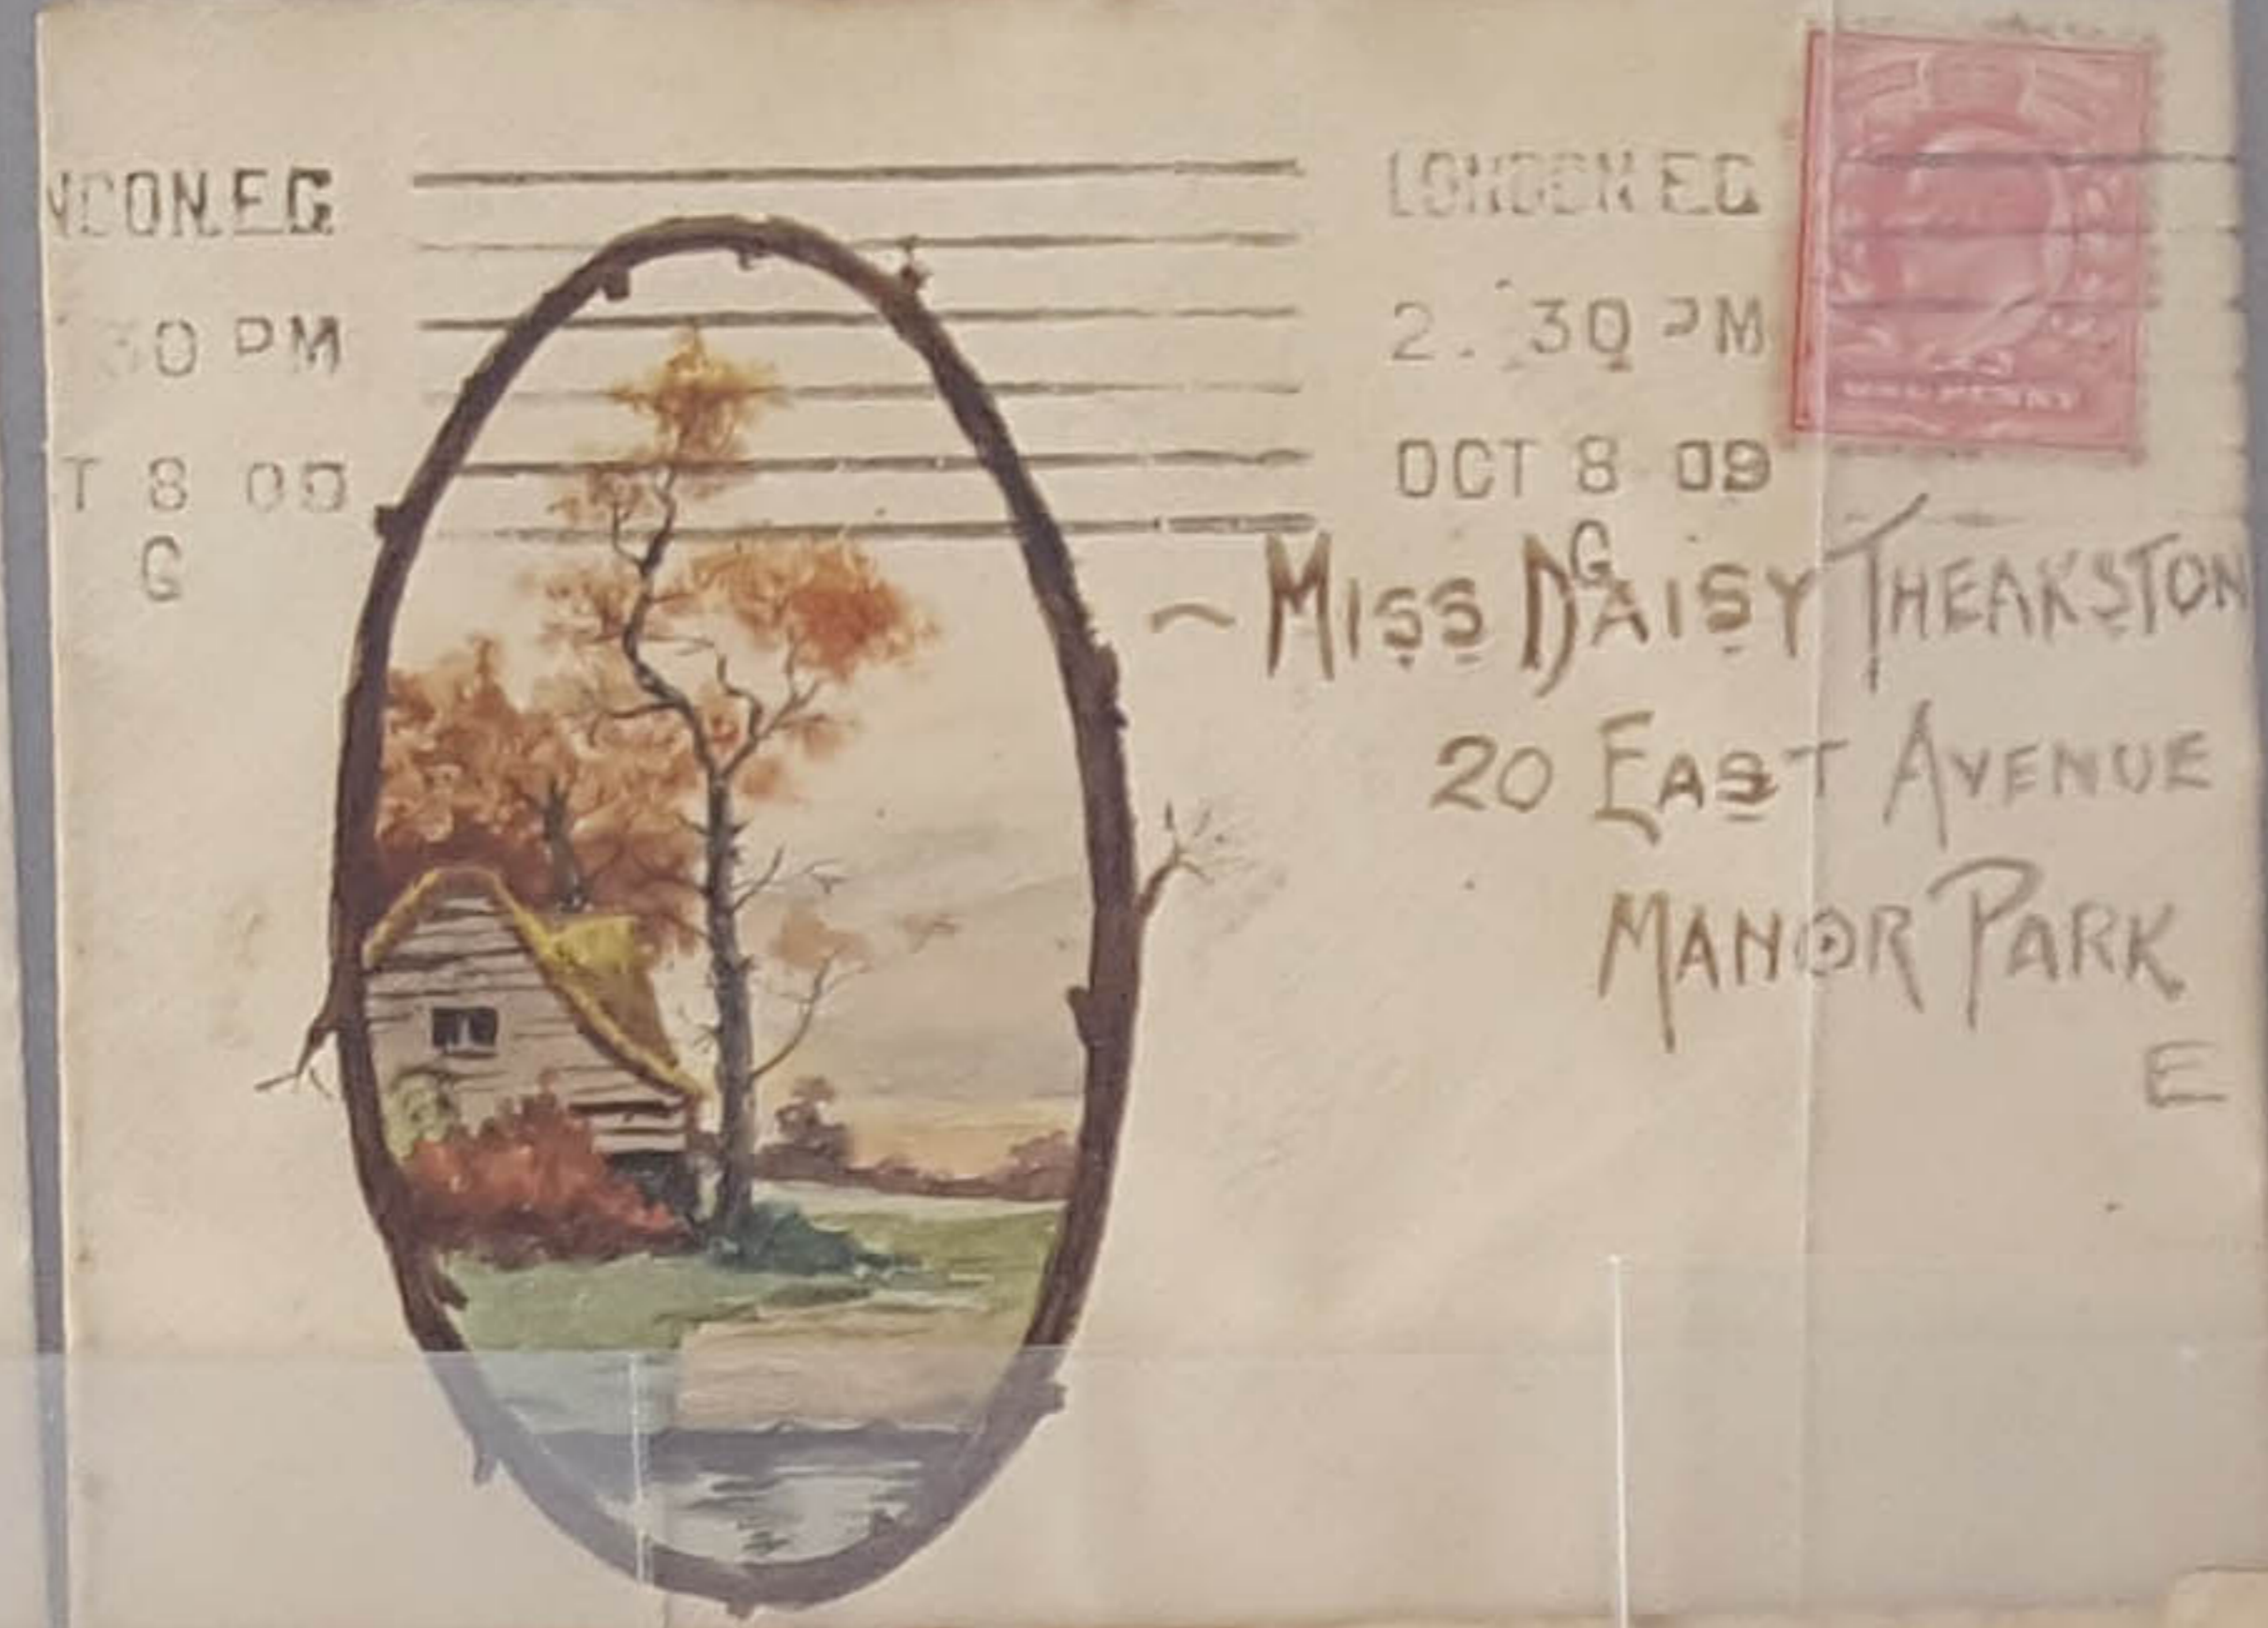 LONDON.E.C
2. 30 PM
OCT 8 09
G
30 PM
T 8 09
G
ONE PENNY
~ MISS DAISY THEAKSTON
20 EAST AVENUE
MANOR PARK
E